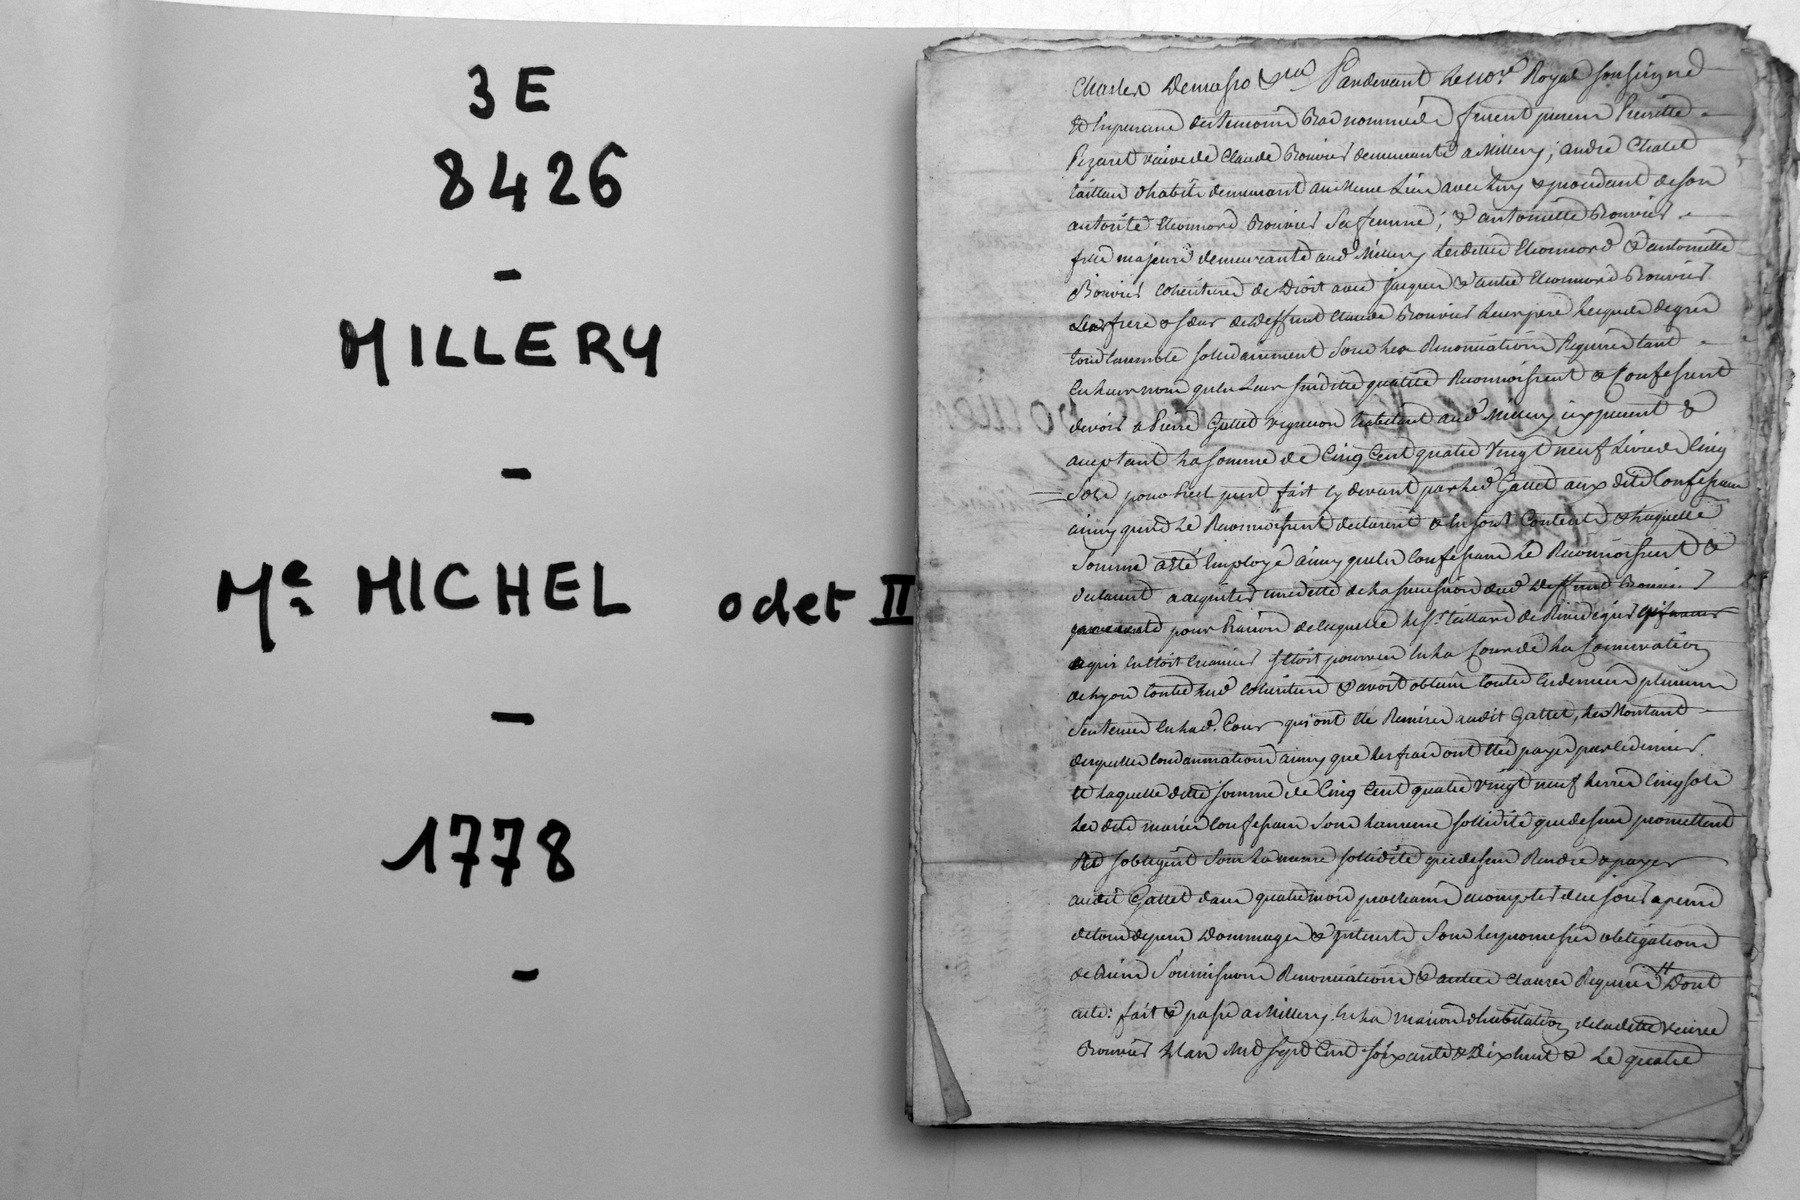 3E
8426
-
MILLERY
-
-
Me MICHEL odet II
-
1778
-
Pardevant le no.re Royal soussigné
& En presence des temoins Bas nommés furent presens Pierrette
Pezaret veuve de Claude Bouvier demeurante a Millery; andré Chatel
tailleur d'habits demeurant au meme Lieu avec Luy & procedant de son
autorité Eleonord Bouvier Sa femme; & antoinette Bouvier
fille majeure demeurante aud. Millery lesdittes Eleonord & antoinette
Bouvier coheritieres de Droit avec jacques & autre Eleonord Bouvier
Leur frere & sœur dudeffunt Claude Bouvier Leur pere Lesquels de gré
tous Ensemble sollidairement Sous les Renonciations Requises tant
En leurs noms qu'en Leurs susdittes qualités Reconnoissent & Confessent
devoir a Pierre Gattet vigneron habitant aud. Millery icy present &
acceptant La somme de Cinq Cent quatre Vingt neuf Livres Cinq
Sols pour Prest fait cy devant par led. Gattet aux dits Confessans
ainsy qu'ils Le Reconnoissent declarent & En sont Contents & laquelle
Somme a été Employé ainsy que les Confessans Le Reconnoissent &
declarent a acquitter une dette de la succession dud. deffunt Bouvier
pour Raison de laquelle le S.r taillard de Rivedegier
En étoit Creancier s'étoit pourvu En la Cour de La Conservation
de Lyon contre les d. coheritiers & avoit obtenu contre Ces derniers plusieurs
Sentences En lad. Cour qui ont été Remises audit Gattet, Le Montant
desquelles Condamnations ainsy que les frais ont été payés par Ce dernier
& laquelle ditte somme de Cinq Cent quatre vingt neuf Livres Cinq sols
Les dits mariés Confessans Sous La meme sollidité que dessus promettent
& s'obligent Sous La meme sollidité que dessus Rendre & payer
audit Gattet dans quatre mois prochains a compter de ce jour a peine
de tous depens Dommages & interests Sous Les promesses obligations
de Biens Soumissions Renonciations & autres Clauses Requises Dont
acte: fait & passé a Millery En La maison d'habitation de laditte veuve
Bouvier L'an Mil Sept Cent soixante & Dix huit & Le quatre